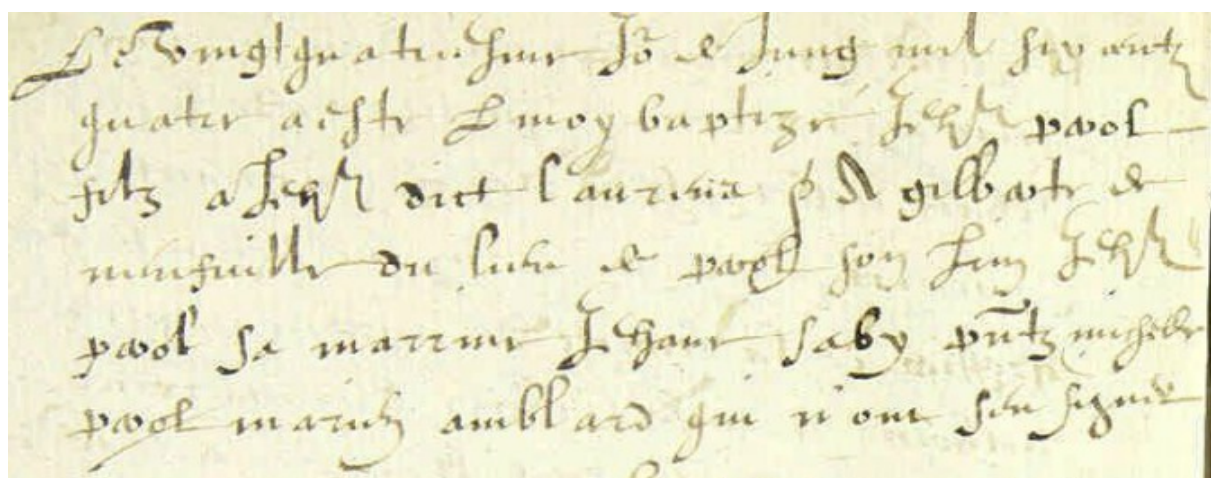 Le vingt quatriesme Jor de Jung mil six centz
quatre a este par moy baptize Jehan pacol
filz a Jehan dict Laurens & gilberte de
neufville du lieu de pacol son parin Jehan
pacol sa marrine Jehane saby pntz michelle
pacol marieux amblard qui n'ont sceu signer